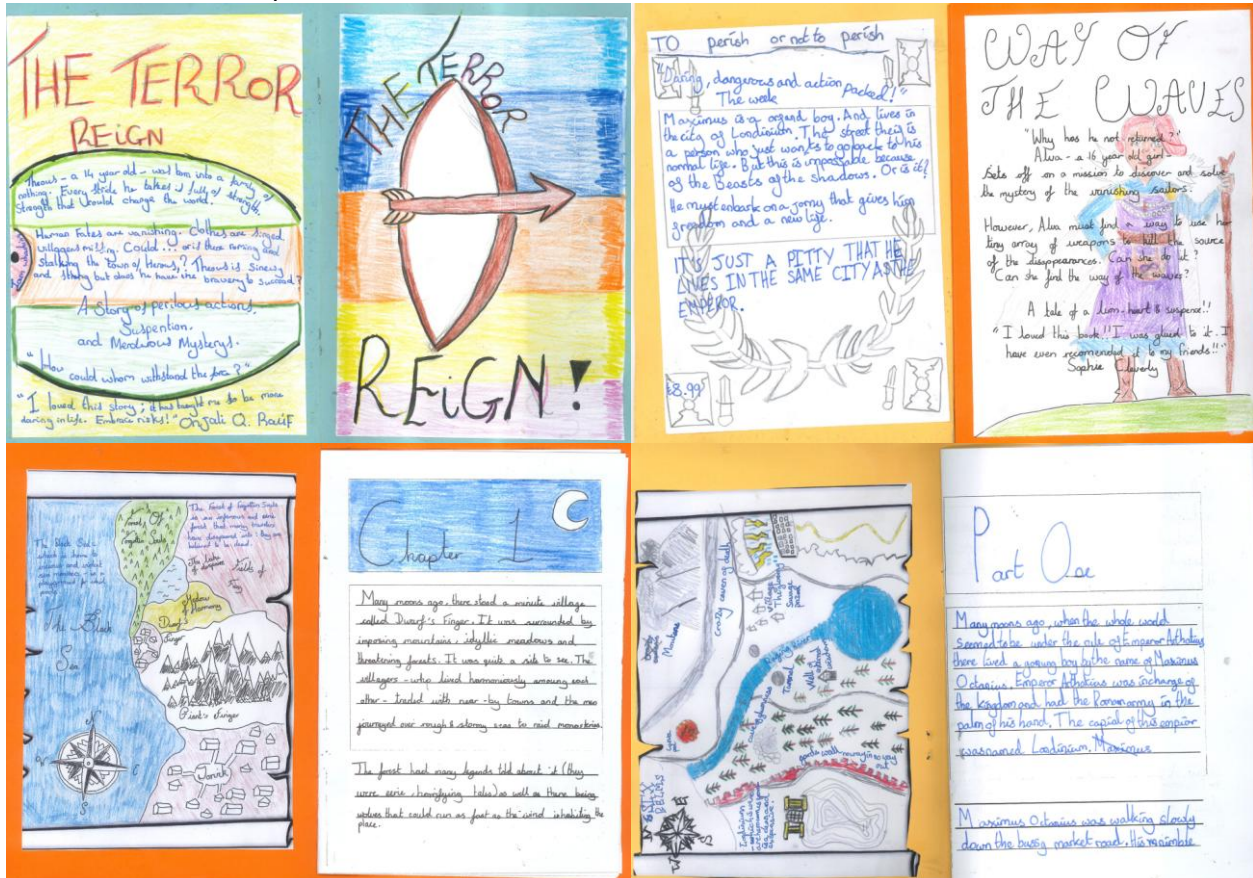 THE TERROR
REIGN
Theous - a 14 year old - was born into a family of
nothing. Every stride he takes is fully of strength.
Strength that would change the world.
Human Fates are vanishing. Clothes are singed
villagers missing. Could... or is there roaming and
stalking the town of Herous,? Theous is sinewy
and strong but does he have the bravery to succeed?
A Story of perilous actions.
Suspention.
and Merduous Mysterys.
"How could whom withstand the fire?"
"I loved this story; it has taught me to be more
daring in life. Embrace risks!" Onjali Q. Raúf
THE TERROR
REiGN!
TO perish or not to perish
"Daring, dangerous and action packed!"
The week
Maximus is a organd boy. And lives in
the city of Londinium. The street theif is
a person who just wants to go back to his
normal life. But this is impossable because
of the Beasts of the shadows. Or is it?
He must enbark on a jorny that gives him
freedom and a new life.
IT'S JUST A PITTY THAT HE
LIVES IN THE SAME CITY AS THE
EMPEROR.
£8.99
WAY OF
THE WAVES
"Why has he not returned?"
Alva - a 16 year old girl -
sets off on a mission to discover and solve
the mystery of the vanishing sailors.
However, Alva must find a way to use her
tiny array of weapons to kill the source
of the disappearances. Can she do it?
Can she find the way of the waves?
A tale of a lion-heart & suspense!!
"I loved this book!! I was glued to it. I
have even recomended it to my friends!!"
Sophie Cleverly
Forest Of
Forgotten Souls
The Forest of Forgotten Souls
is an infamous and eerie
forest that many travelers
have disappeared into; they are
believed to be dead.
The Black Sea -
which is home to
playground for
The Lake
Fields of
Meadow
of Harmony
Dwarf's
Finger
The Black
Sea
Giant's Finger
Jorvik
N
E
S
Chapter 1
Many moons ago, there stood a minute village
called Dwarf's Finger. It was surrounded by
imposing mountains, idyllic meadows and
threatening forests. It was quite a site to see. The
villagers - who lived harmoniously among each
other - traded with near-by towns and the men
journeyed over rough & stormy seas to raid monasteries.
The forest had many legends told about it (they
were eerie, horrifying tales) as well as there being
wolves that could run as fast as the wind inhabiting the
place.
Mountains
crazy caven of death
village
Savage
Raging River
Tunnel
Well
N
E
S
W
Part One
Many moons ago, when the whole world
seemed to be under the rule of Emperor Athotius
there lived a yogung boy by the name of Maximus
Octavius. Emperor Athotius was incharge of
the kingdom and had the Roman army in the
palm of his hand. The capial of this empior
was named Londinium. Maximus
Maximus Octavius was walking slowly
down the bussy market road. His nimble